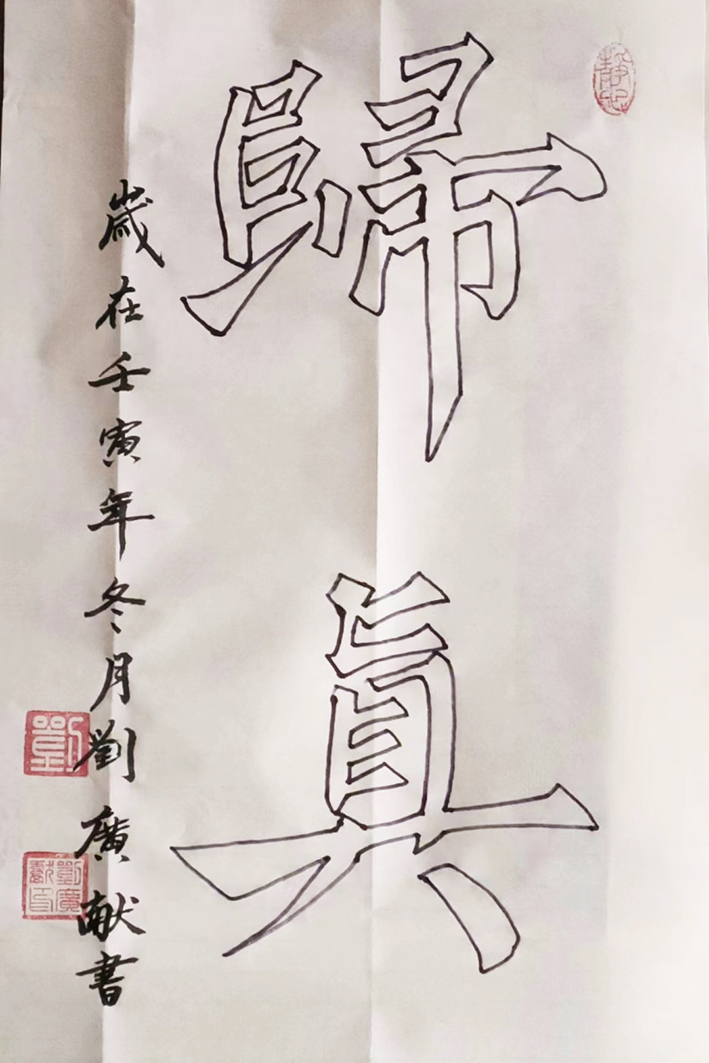 歸眞
歲在壬寅年冬月劉廣献書
劉
劉廣献印